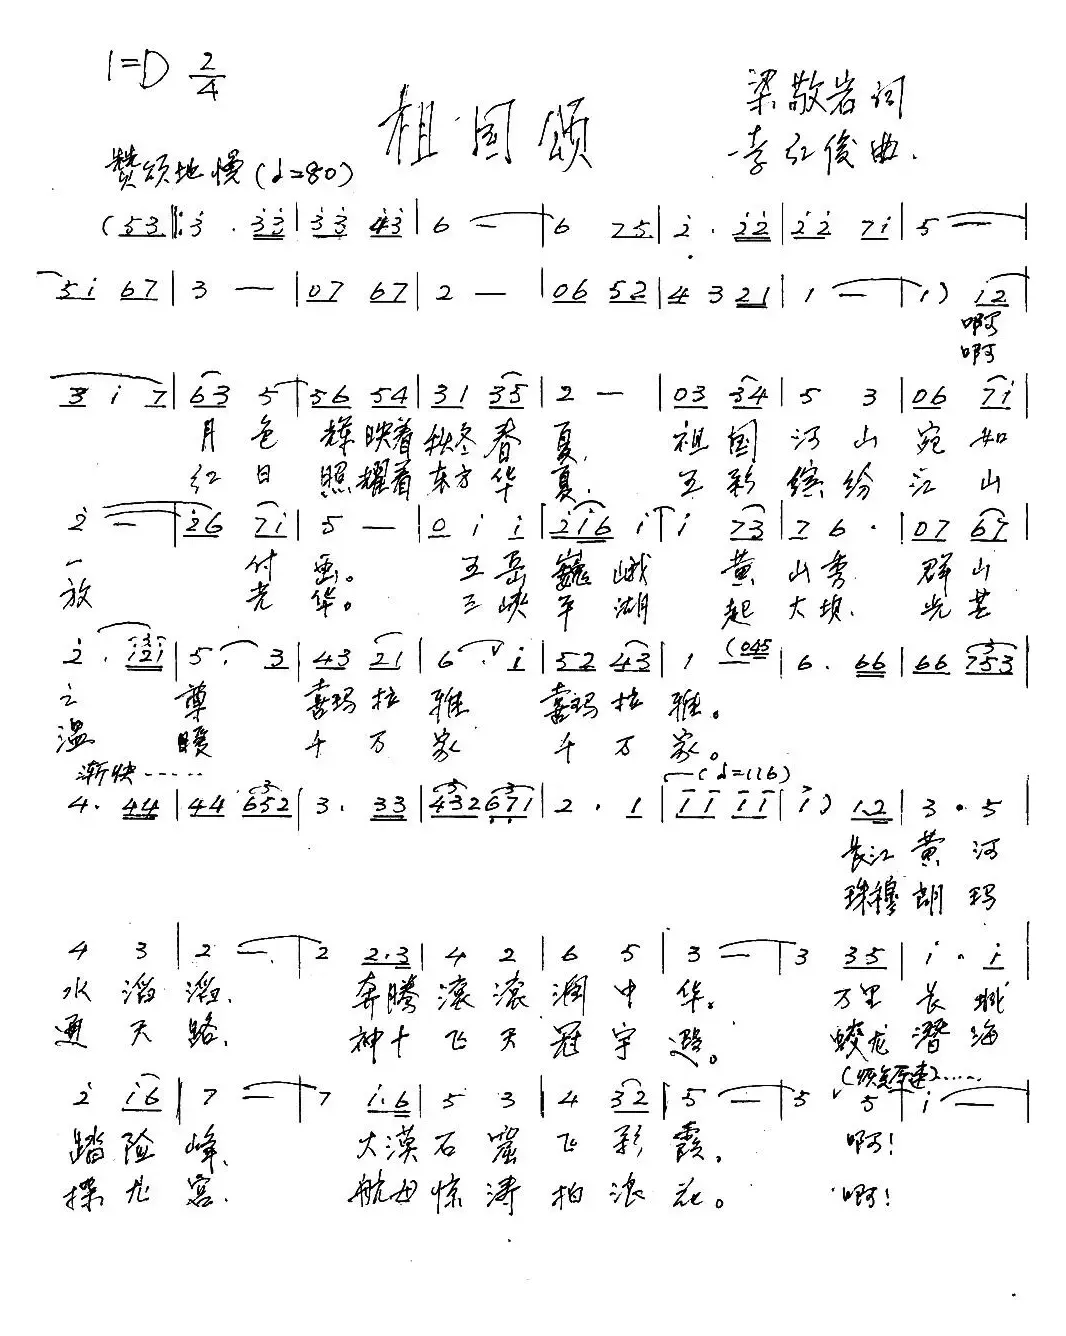 1=D 2/4
祖国颂
梁敬岩词
李红俊曲.
赞颂地慢(♩=80)
(53|:3·33|33 43|6 —|6 75|2·22|22 7i|5 —|
5i 67|3 —|07 67|2 —|06 52|4 3 21|1 —|1) i2|
啊
啊
3 i 7|63 5|56 54|31 35|2 —|03 34|5 3|06 7i|
月色 辉映着秋冬春夏. 祖国河山宛如
红日 照耀着东方华夏. 五彩缤纷江山
2 —|26 7i|5 —|0 i i|2i6 i|i 73|7 6·|07 67|
一 付画。 五岳巍峨 黄山秀. 群山
放 光华。 三峡平湖 起大坝. 光芒
2·i2i|5·3|43 21|6·i|52 43|1 (045|6·66|66 753|
之 尊 喜玛拉雅 喜玛拉雅。
温 暖 千万家 千万家。
渐快······
4·44|44 652|3·33|432 671|2·1|11 11|i) 1.2|3·5|
(♩=116)
长江黄河
珠穆朗玛
4 3|2 —|2 2.3|4 2|6 5|3 —|3 35|i·i|
水滔滔. 奔腾滚滚润中华。 万里长城
通天路. 神十飞天冠宇遐。 蛟龙潜海
(恢复原速)······
2 i6|7 —|7 i.6|5 3|4 32|5 —|5 5|i —|
踏险峰. 大漠石窟飞彩霞. 啊!
探龙宫. 航母惊涛拍浪花。 啊!